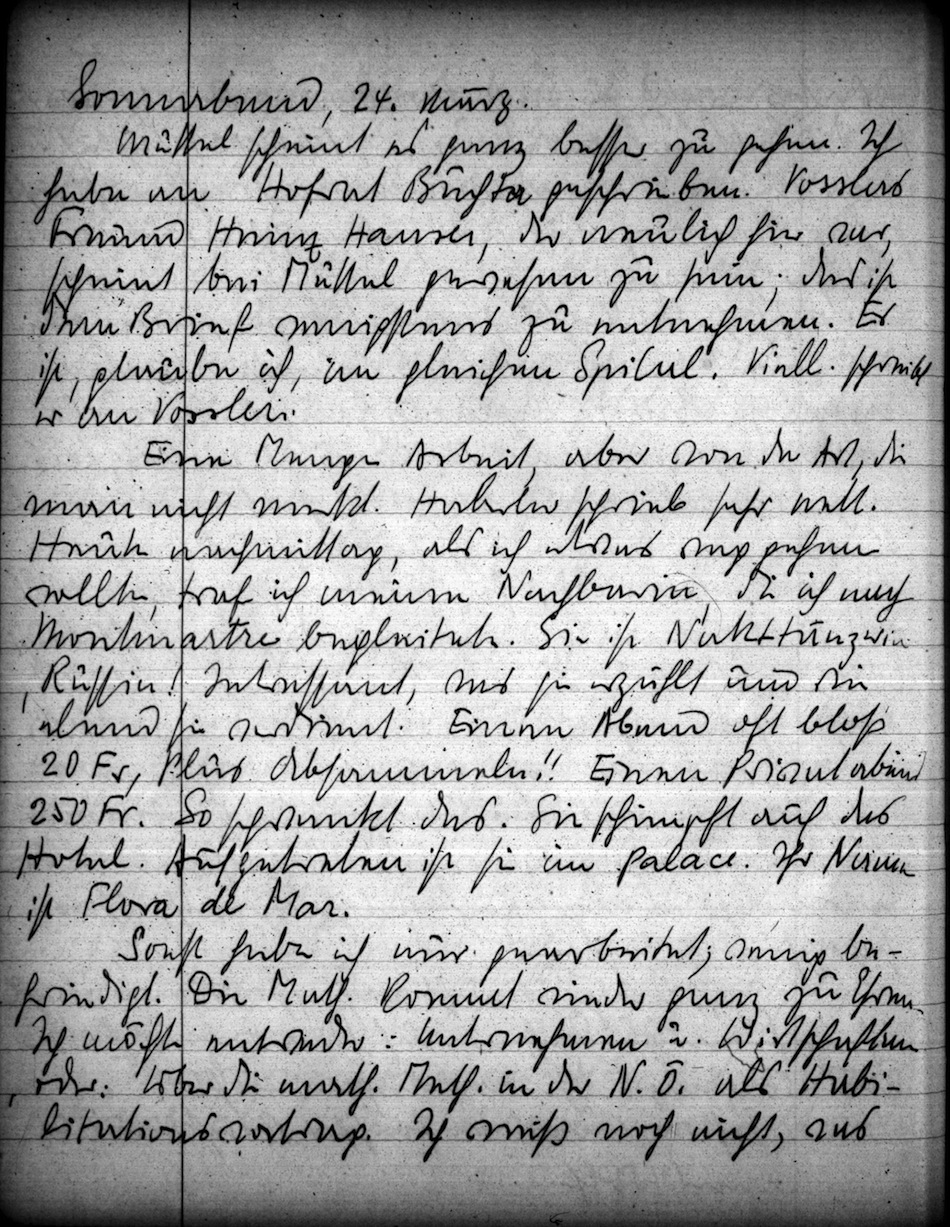 Sonnabend, 24. März.
Muttel scheint es ganz besser zu gehen. Ich
habe an Hofrat geschrieben. Vosslers
Freund Heinz Hauser, der neulich hier war,
scheint bei Muttel gewesen zu sein; das ist
dem Brief wenigstens zu entnehmen. Er
ist, glaube ich, im gleichen Spital. Viell. schreibt
er an Vossler.
Eine Menge Arbeit, aber von der Art, die
man nicht merkt. Haberler schrieb sehr nett.
Heute nachmittag, als ich etwas weg gehen
wollte, traf ich meine Nachbarin, die ich nach
Montmartre begleitete. Sie ist Nackttänzerin
, Russin! Interessant, was sie erzählt und wie
elend sie verdient. Einen Abend oft bloß
20 Fr, plus Absammeln!! Einen Privatabend
250 Fr. So schwankt das. Sie schimpft auch das
Hotel. Aufgetreten ist sie im Palace. Ihr Name
ist Flora de Mar.
Sonst habe ich nur gearbeitet; wenig be-
friedigt. Die Meth. kommt wieder ganz zu Ehren.
Ich möchte entweder: Unternehmen u. Wirtschaften
, oder: Über die math. Meth. in der N. Ö. als Habi-
litationsvortrag. Ich weiß noch nicht, was